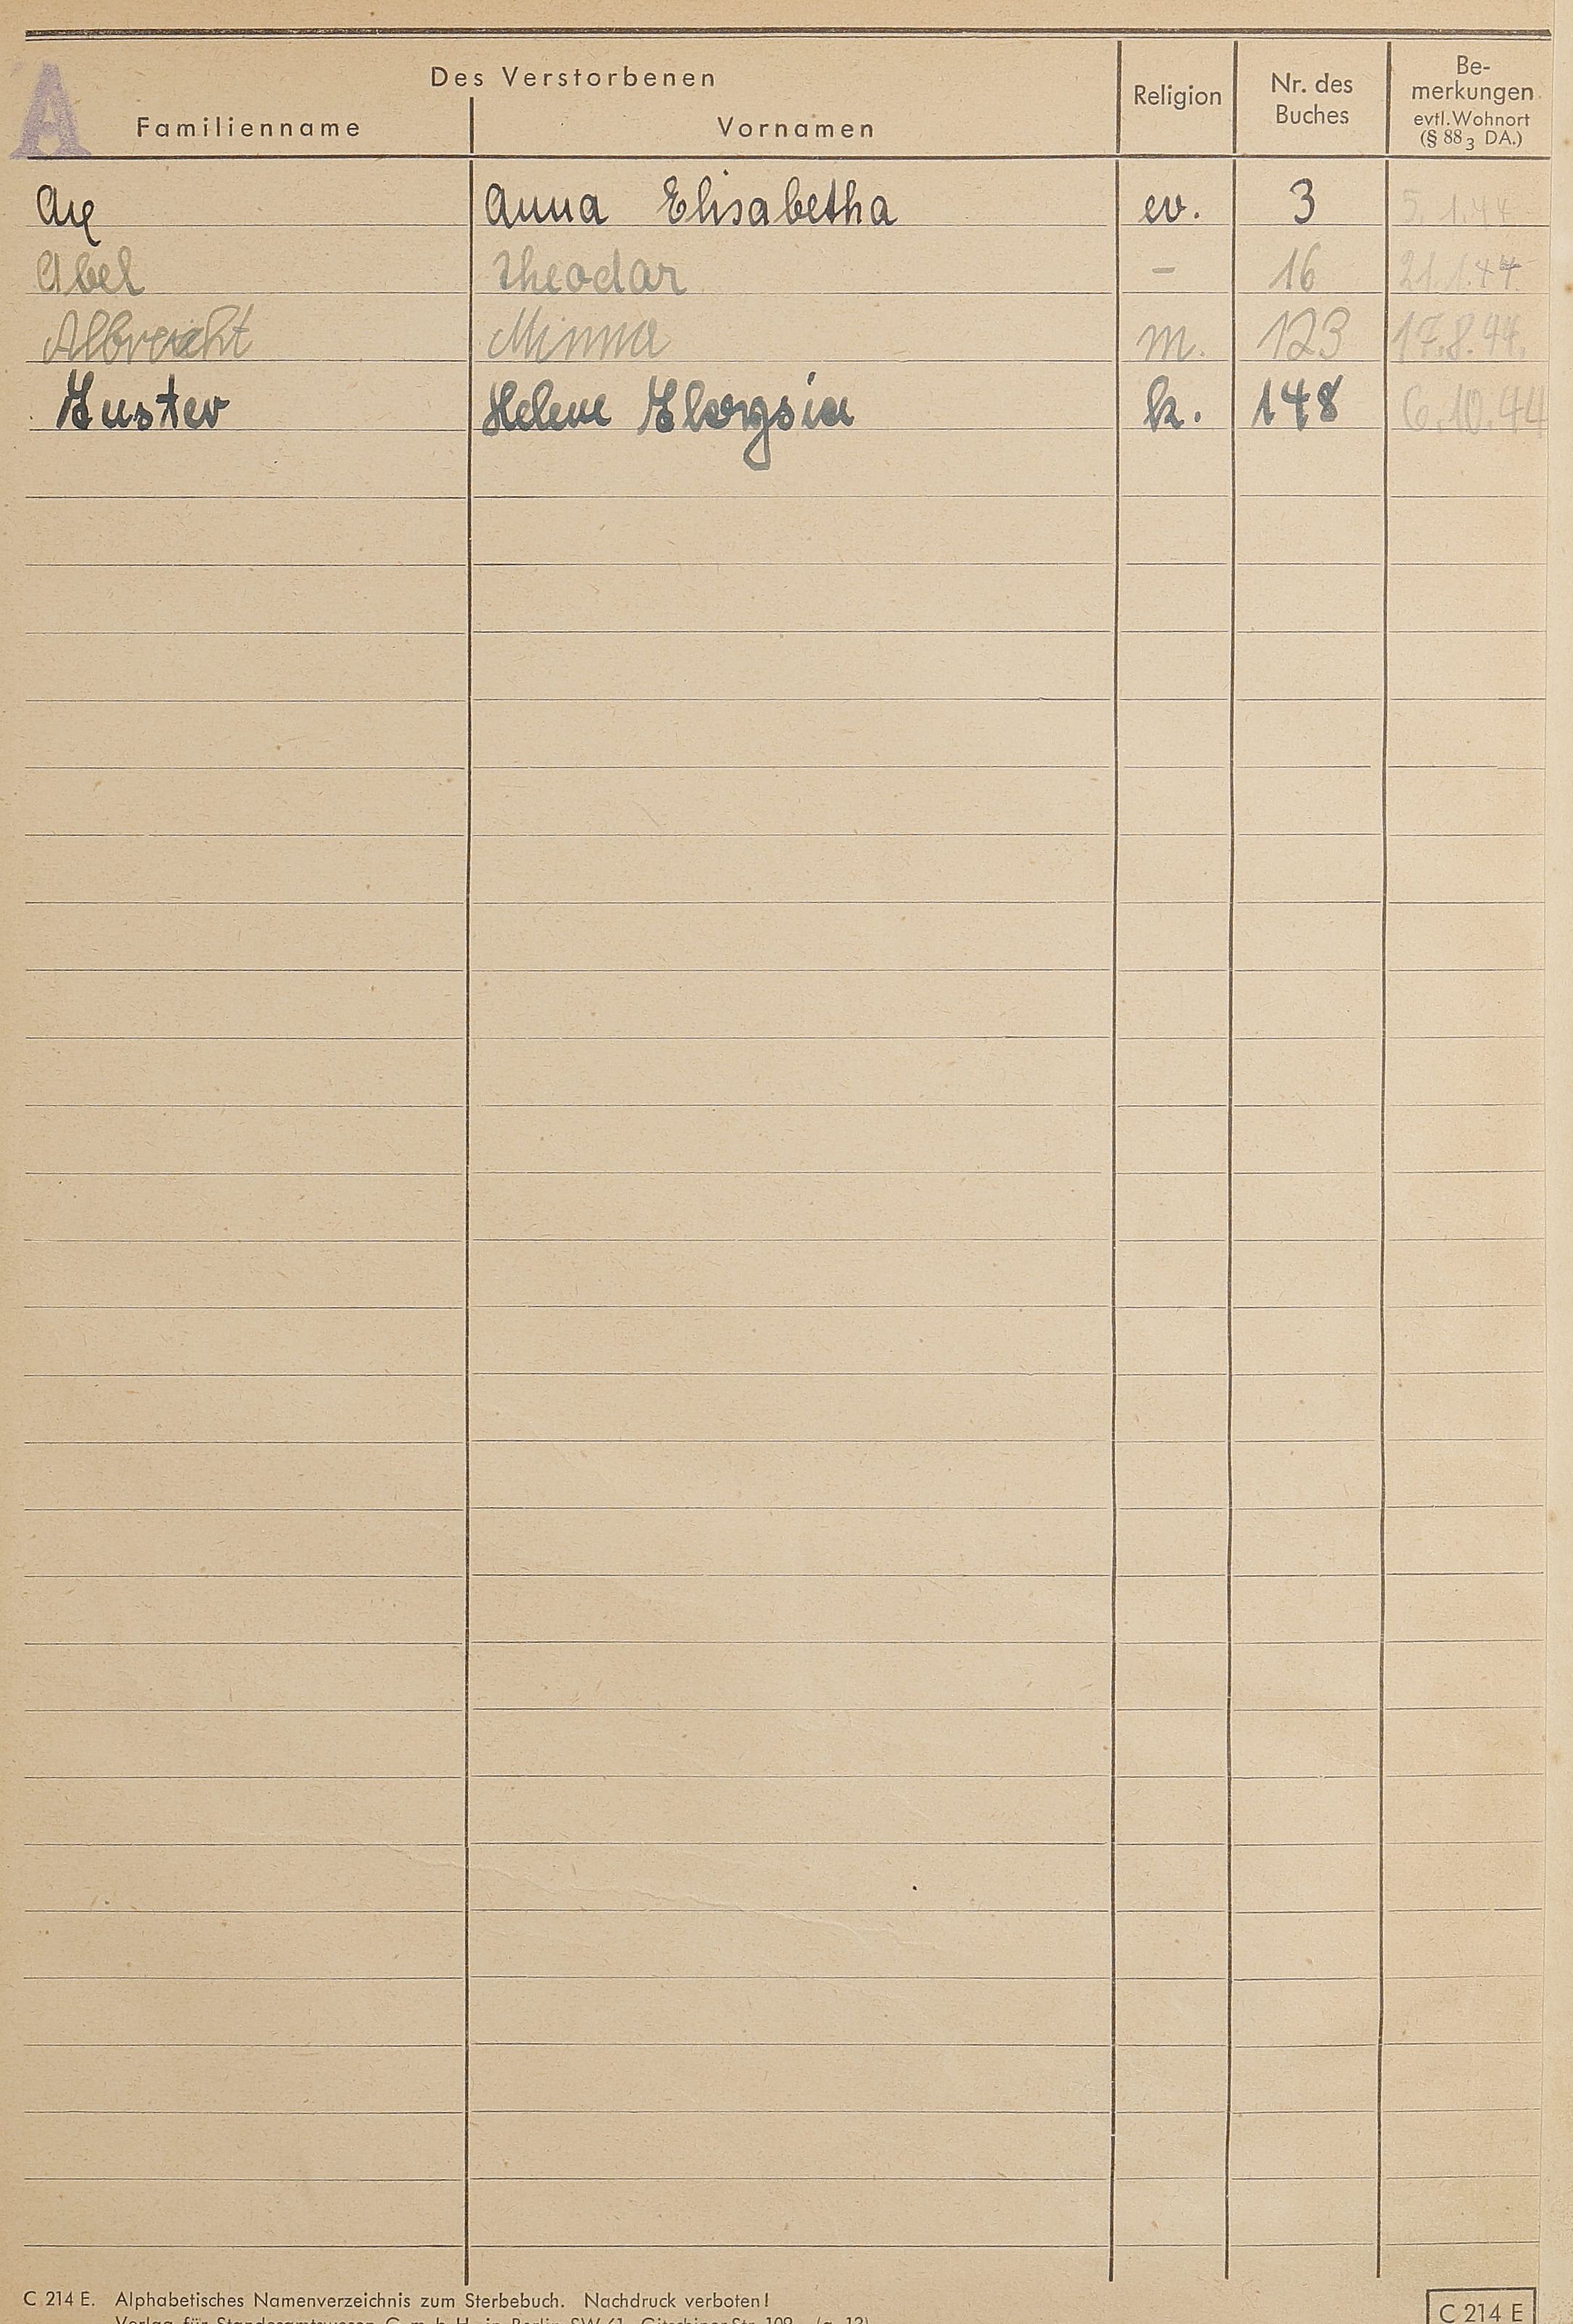 A
Des Verstorbenen
Familienname Vornamen Religion Nr. des Buches Be-merkungen evtl. Wohnort (§ 88 3 DA.)
Axe Anna Elisabetha ev. 3 5. 1.44
Abel Theodor – 16 21.1.44
Albrecht Minna m. 123 17.8.44.
Helene k. 148 6.10.44
C 214 E. Alphabetisches Namenverzeichnis zum Sterbebuch. Nachdruck verboten!
Verlag für Standesamtswesen G. m. b. H. in Berlin SW 61, Gitschiner Str. 109. (g. 12)
C 214 E